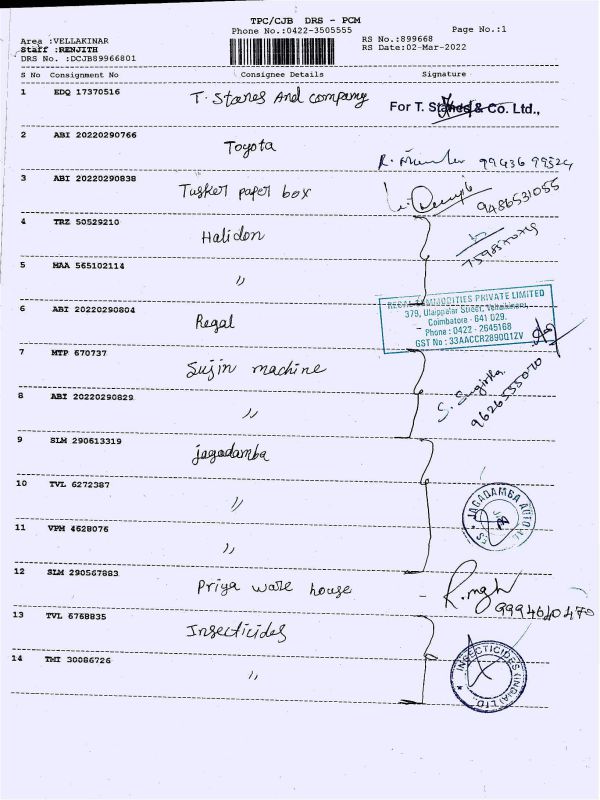 TPC/CJB DRS - PCM
Phone No.:0422-3505555 Page No.:1
Area :VELLAKINAR RS No.:899668
Staff :RENJITH RS Date:02-Mar-2022
DRS No. :DCJB89966801
S No Consignment No Consignee Details Signature
1 EDQ 17370516 T. Stanes And company For T. Stanes & Co. Ltd.,
2 ABI 20220290766 Toyota
3 ABI 20220290838 Tusker paper box 9486531055
4 TRZ 50529210 Halidon
5 MAA 565102114 〃
REGAL COMMODITIES PRIVATE LIMITED
379, Ulaippalar Street, Vellakinaru,
Coimbatore - 641 029.
Phone : 0422 - 2645168
GST No : 33AACCR2890Q1ZV
6 ABI 20220290804 Regal
7 MTP 670737 Sujin machine
S. Sugirtha
9626555070
8 ABI 20220290829 〃
9 SLM 290613319 jagadamba
10 TVL 6272387 〃
JAGADAMBA AUTO
11 VPM 4628076 〃
12 SLM 290567883 Priya ware house
9994640470
13 TVL 6768835 Insecticides
14 TMI 30086726 〃
INSECTICIDES (INDIA) LTD.